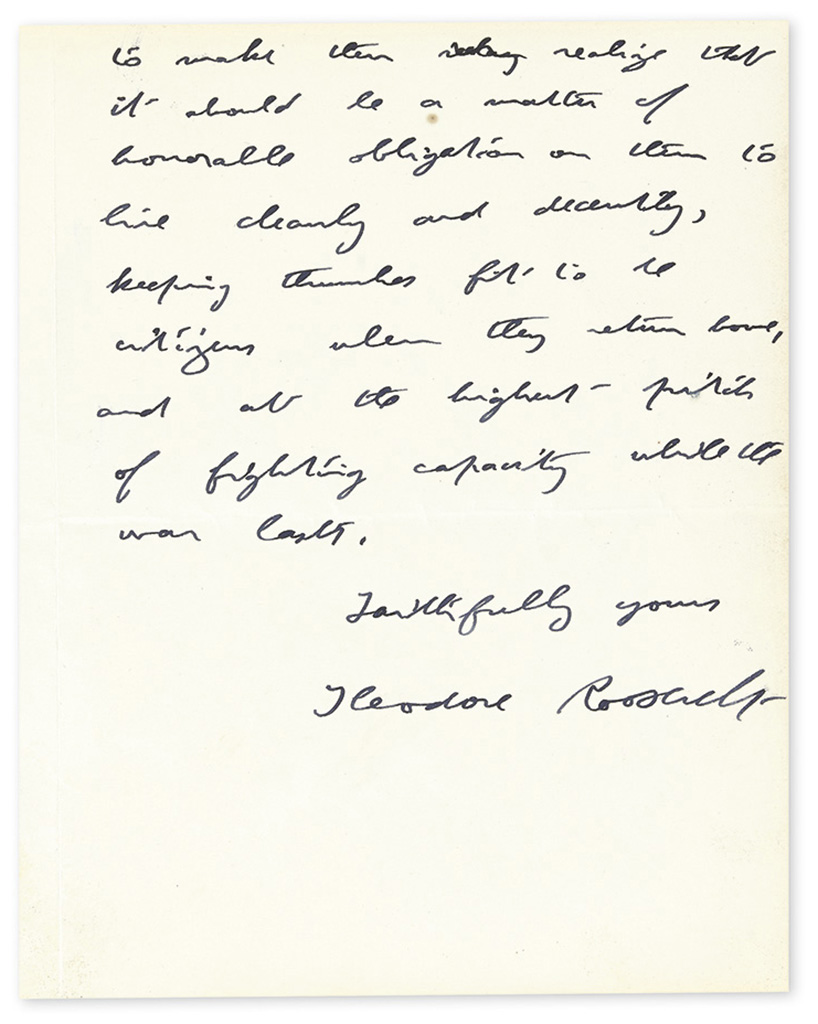 to make them realize that
it should be a matter of
honorable obligation on them to
live cleanly and decently,
keeping themselves fit to be
citizens when they return home,
and at the highest pitch
of fighting capacity while the
war lasts.
Faithfully yours
Theodore Roosevelt